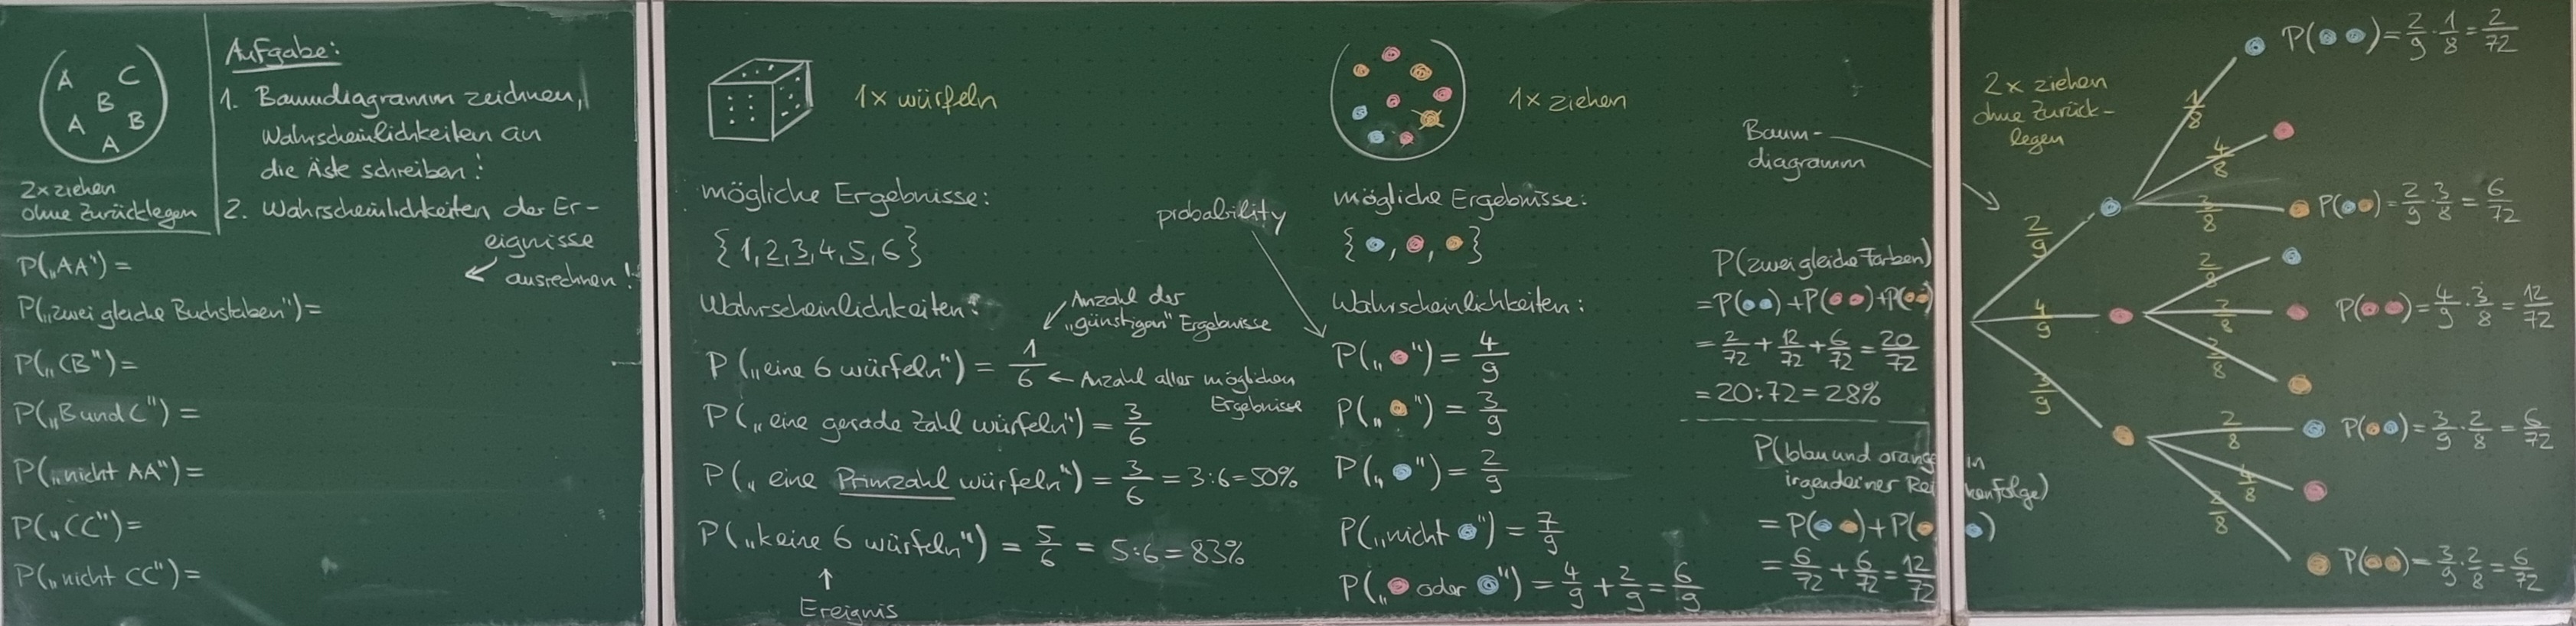 A C
B
A B
A
2x ziehen
ohne Zurücklegen
Aufgabe:
1. Baumdiagramm zeichnen,
Wahrscheinlichkeiten an
die Äste schreiben!
2. Wahrscheinlichkeiten der Er-
eignisse
ausrechnen!
P(„AA") =
P(„zwei gleiche Buchstaben") =
P(„CB") =
P(„B und C") =
P(„nicht AA") =
P(„CC") =
P(„nicht CC") =
1x würfeln
mögliche Ergebnisse:
{1,2,3,4,5,6}
Wahrscheinlichkeiten:
Anzahl der
„günstigen" Ergebnisse
P(„eine 6 würfeln") = 1/6
← Anzahl aller möglichen
Ergebnisse
P(„eine gerade Zahl würfeln") = 3/6
P(„eine Primzahl würfeln") = 3/6 = 3:6 = 50%
P(„keine 6 würfeln") = 5/6 = 5:6 = 83%
↑
Ereignis
1x ziehen
probability
mögliche Ergebnisse:
{●, ●, ●}
Wahrscheinlichkeiten:
P(„●") = 4/9
P(„●") = 3/9
P(„●") = 2/9
P(„nicht ●") = 7/9
P(„● oder ●") = 4/9 + 2/9 = 6/9
Baum-
diagramm
P(zwei gleiche Farben)
= P(●●) + P(●●) + P(●●)
= 2/72 + 12/72 + 6/72 = 20/72
= 20:72 = 28%
P(blau und orange in
irgendeiner Reihenfolge)
= P(●●) + P(●●)
= 6/72 + 6/72 = 12/72
2x ziehen
ohne Zurück-
legen
2/9
4/9
3/9
1/8
P(●●) = 2/9 · 1/8 = 2/72
4/8
3/8
P(●●) = 2/9 · 3/8 = 6/72
2/8
P(●●) = 4/9 · 3/8 = 12/72
2/8
P(●●) = 3/9 · 2/8 = 6/72
4/8
2/8
P(●●) = 3/9 · 2/8 = 6/72